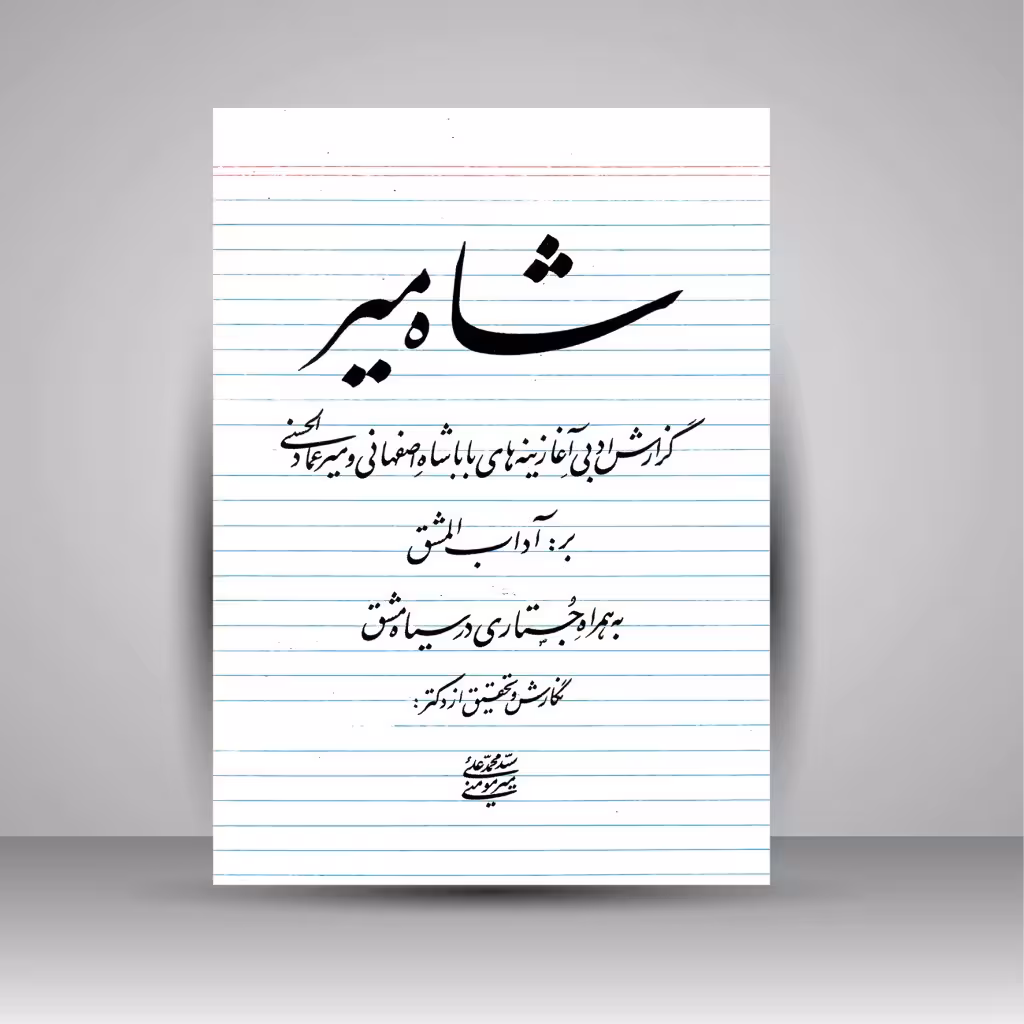 شاه میر
گزارش ادبی آغازینه های باباشاه اصفهانی و میرعماد الحسنی
بر: آداب المشق
به همراهِ جُستاری در سیاه مشق
نگارش و تحقیق از دکتر:
سیّد محمّد علی
میرمومنی